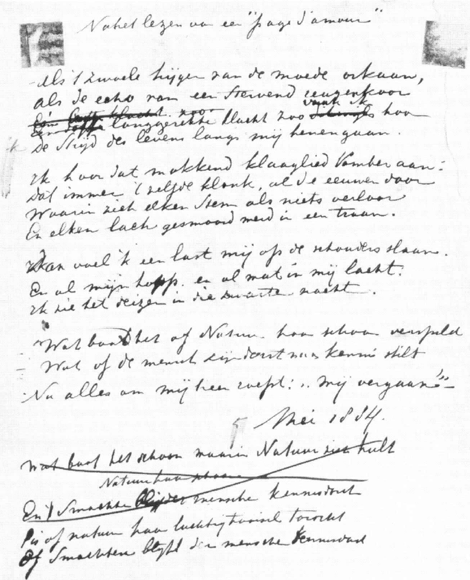 Na het lezen van een "page d'amour"
Als 't zwoele hijgen van de moede orkaan,
als de echo van een stervend reuzenkoor
Een langgerekte klacht zoo hoor
De Strijd des levens langs mij henengaan.
Ik hoor dat mokkend klaaglied somber aan:
Dat immer 't zelfde klonk, al de eeuwen door
Waarin zich elken Stem als niets verloor
En elken lach gesmoord werd in een traan.
Dan voel 'k een last mij op de schouders slaan.
En al mijn hoop. en al wat in mij lacht.
Ik zie het deizen in die zwarte nacht.
Wat baat het of Natuur haar schoon
Wat of de mensch zijn dorst naar kennis stilt
Nu alles om mij heen roept: „mij vergaan"
5 Mei 1884.
Wat baat het schoon waarin Natuur zich hult
Natuur haar schoon
En 't Smachten mensche kennisdorst
of natuur haar
Of Smachten blijft der mensche kennisdorst